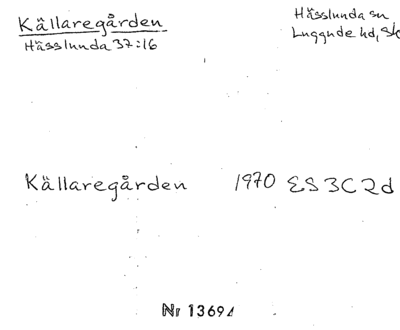 Källaregården
Hässlunda 37:16
Hässlunda sn
Luggude hd, Sk
Källaregården 1970 ES 3C2d
Nr 13694